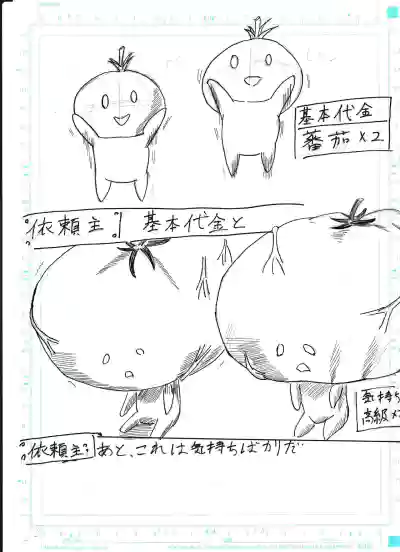 基本代金
蕃茄×2
依頼主 基本代金と
気持ち
高級
依頼主 あと、これは気持ちばかりだ